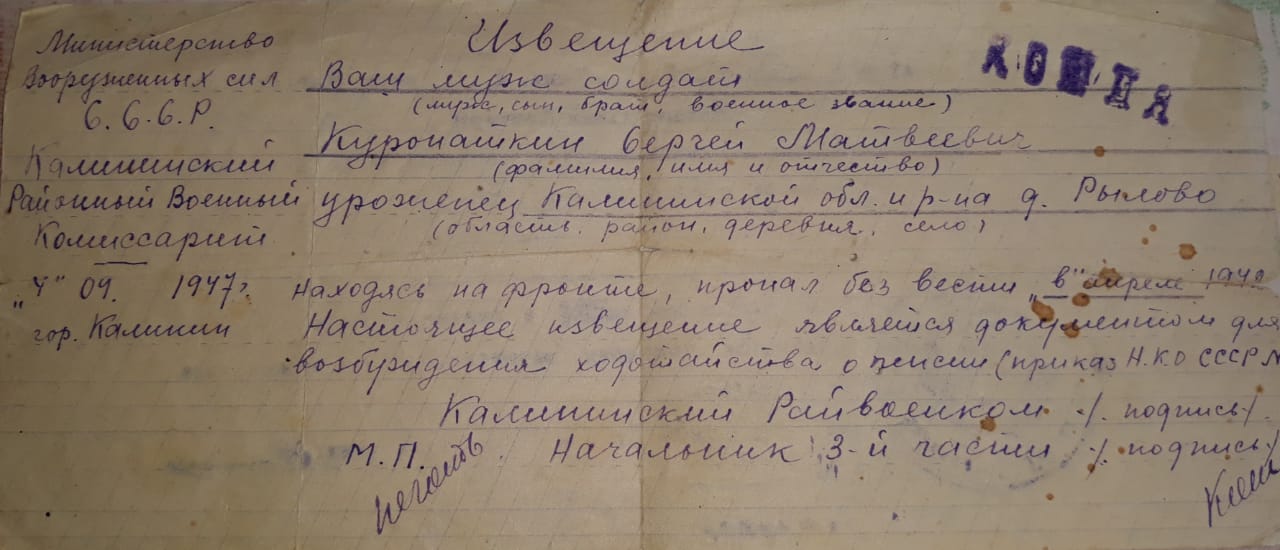 Министерство
Вооруженных сил
С.С.С.Р.
Калининский
Районный Военный
Комиссариат
"4" 09. 1947г.
гор. Калинин
Извещение
КОПИЯ
Ваш муж солдат
(муж, сын, брат, военное звание)
Куропаткин Сергей Матвеевич
(фамилия, имя и отчество)
уроженец Калининской обл. и р-на д. Рылово
(область, район, деревня, село)
находясь на фронте, пропал без вести "в" апреле
Настоящее извещение является документом для
возбуждения ходотайства о пенсии (приказ Н.КО СССР №
Калининский Райвоенком ./. подпись/.
М.П. Начальник 3-й части ./. подпись/